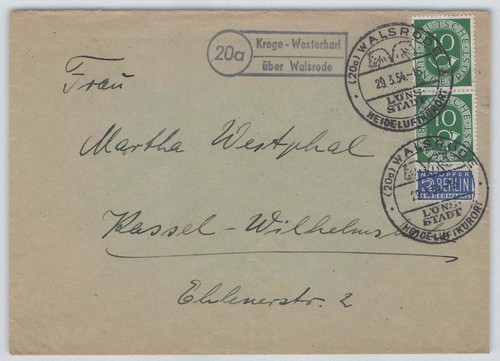 20a
Kroge-Westerharl
über Walsrode
(20a) WALSRODE
29.3.54.-
LÖNS-
STADT
HEIDE-LUFTKURORT
DEUTSCHE
10
10
(20a) WALSRODE
LÖNS-
STADT
HEIDE-LUFTKURORT
NOTOPFER
2 BERLIN
STEUERMARKE
Frau
Martha Westphal
Kassel-Wilhelmsh
Ehlenerstr. 2